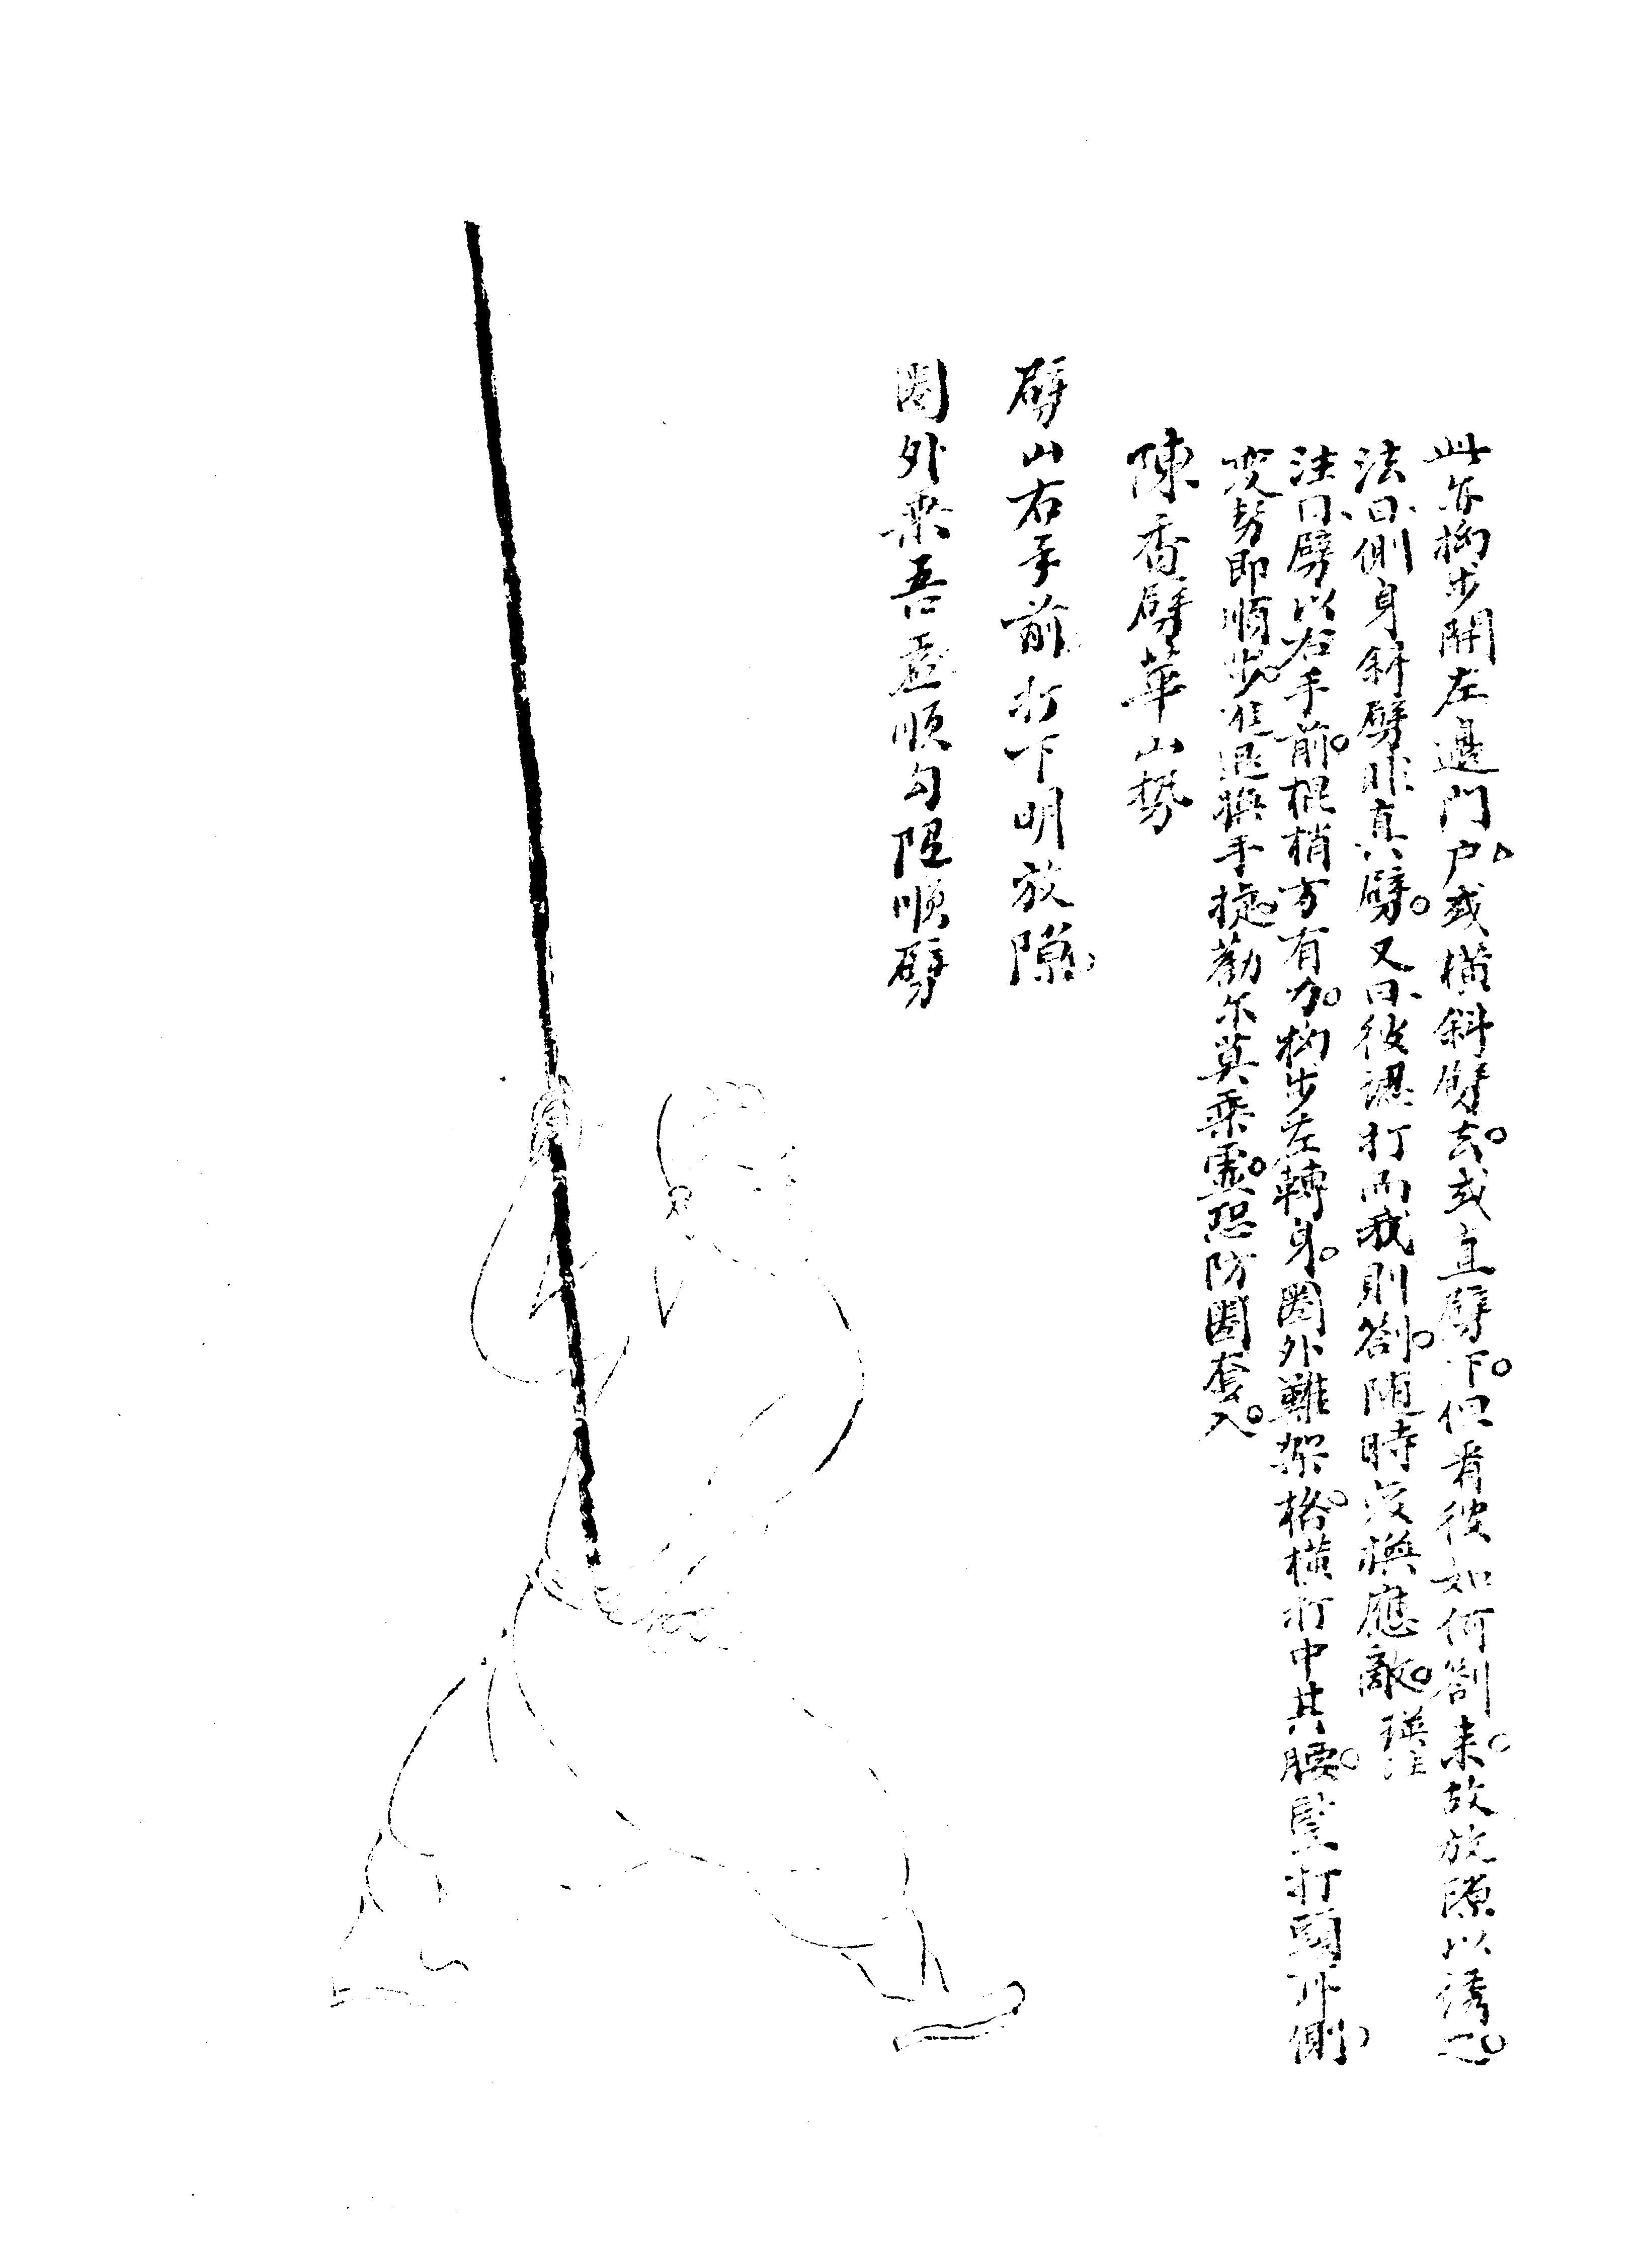 此亦拗步開左邊門户或橫斜劈去或直劈下但看彼如何劄来故放隙以誘之
法曰側身斜劈非真劈又曰彼混打而我則劄随時变换應敵 瑛注
注曰劈以右手前棍梢方有力拗步左轉身圈外難架格橫打中其腰竪打頭耳側
变势即順步進退换手捷勸尔莫乘虚恐防圈套入
陳香劈華山勢
劈山右手前打下明放隙
圈外乘吾虚順勾陞順劈